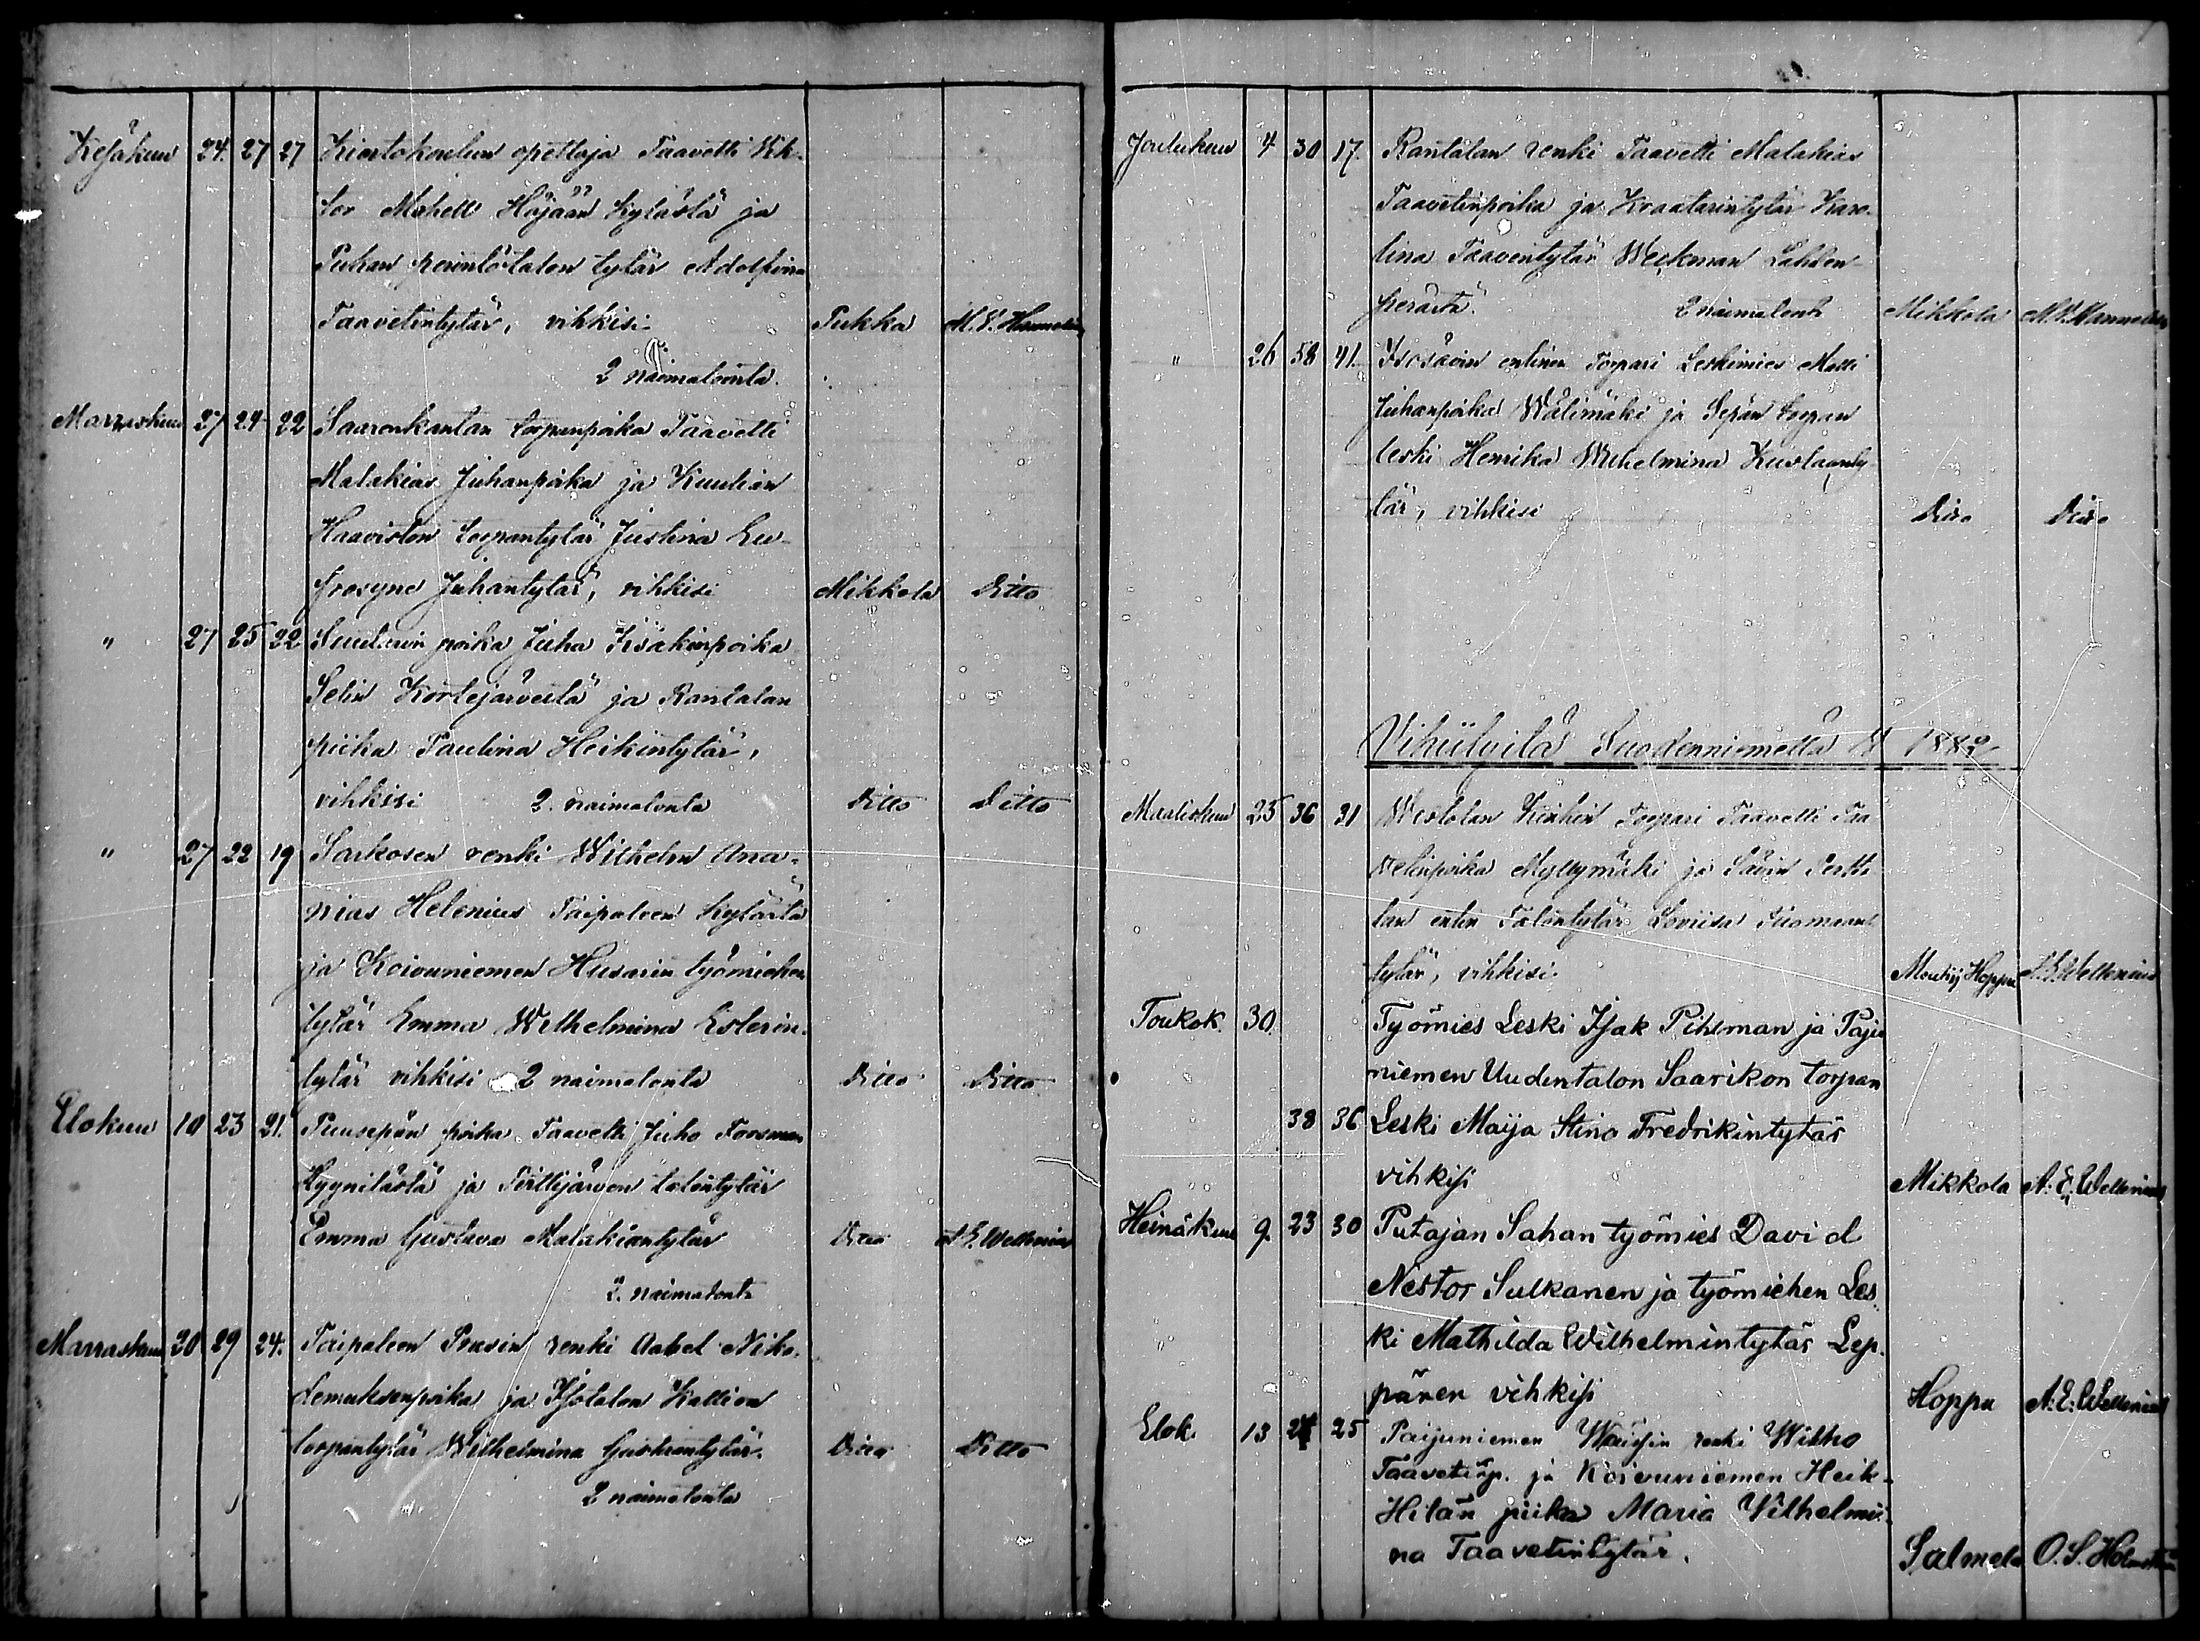 Kesäkuu 24. 27 27 Kiertokoulun opettaja Taavetti Vik-
tor Mikell Häjään kylästä ja
Puhan perintötalon tytär Adolfina
Taavetintytär, vihkisi Pukka
2 naimatonta.
Marraskuu 27 24 22 Saarenkantan torpanpoika Taavetti
Malakias Juhanpoika ja Kuulian
Haaviston torpantytär Justina Eu-
frosyne Juhantytär, vihkisi Mikkola Ditto
" 27 25 22 Suutarin poika Juha Isakinpoika
Selin Kortejärveltä ja Rantalan
piika Paulina Heikintytär,
vihkisi 2. naimatonta Ditto Ditto
" 27 22 19 Sarkosen renki Wilhelm Ana-
nias Helenius Taipaleen kylästä
ja Koivuniemen Husarin työmiehen
tytär Emma Wilhelmina Esterin-
tytär vihkisi 2 naimatonta Ditto Ditto
Elokuu 10 23 21. Puusepän poika Taavetti Juho Forsman
Kyynilästä ja Pirttijärven talontytär
Emma Gustava Malakiantytär Ditto A. E. Wellenius
2. naimatonta
Marraskuu 20 29 24. Taipaleen renki Aabel Niko-
demuksenpoika ja Isotalon Kallion
torpantytär Wilhelmina Gustaantytär. Ditto Ditto
2 naimatonta
Joulukuu 4 30 17. Rantalan renki Taavetti Malakias
Taavetinpoika ja Kraatarintytär Karo-
lina Taavetintytär Weckman Lahden-
perästä. 2 naimatonta Mikkola
" 26 58 41. Isosävin entinen Torpari Leskimies Matti
Juhanpoika Wälimäki ja Sepän torpan
leski Henrika Wilhelmina Kustaanty-
tär, vihkisi Ditto Ditto
Vihityitä Suodenniemellä 1882
Maaliskuu 25 36 31 Westolan Torpari Taavetti Taa
vetinpoika Myllymäki ja Sävin Pertt
lan entin Talontytär Loviisa Tuomaan
tytär, vihkisi. Hoppu A. E. Wellenius
Toukok. 30. Työmies Leski Isak Pihlman ja Paju
niemen Uudentalon Saarikon torpan
38 36 Leski Maija Stina Fredrikintytär
vihkisi Mikkola A. E. Wellenius
Heinäkuu 9. 23 30 Putajan Sahan työmies David
Nestor Sulkanen ja työmiehen Les
ki Mathilda Wilhelmintytär Lep-
pänen vihkisi Hoppu A. E. Wellenius
Elok. 13 24 25 Paijuniemen renki Wilho
Taavetinp. ja Koivuniemen Heik-
Hilän piika Maria Vilhelmi-
na Taavetintytär. Salmela O. S. Holmström